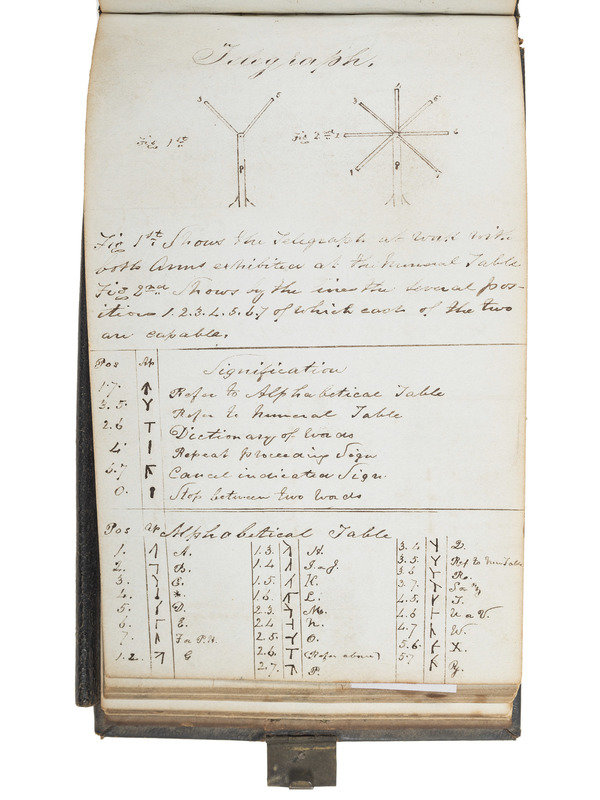 Telegraph.
3 5
4
3 5
Fig 1st
Fig 2nd 2 6
8
1 8 7
Fig 1st Shows the Telegraph at work with
both Arms exhibited at the Numeral Table
Fig 2nd Shows by the lines the several pos-
itions 1.2.3.4.5.6.7 of which each of the two
are capable.
Pos Ap Signification
1.7. Refer to Alphabetical Table
3.5. Refer to Numeral Table
2.6 Dictionary of Words
4. Repeat preceeding Sign
4.7 Cancel indicated Sign.
0. Stop between two Words
Pos Ap Alphabetical Table
1. A. 1.3. H. 3.4 Q.
2. B. 1.4 I or J. 3.5. Ref to Num Table
3. C. 1.5. K. 3.6 R.
4. * 1.6 L. 3.7. S or
5. D. 2.3 M. 4.5. T.
6. E. 2.4 N. 4.6 U or V.
7. F or P.H. 2.5. O. 4.7 W.
1.2. G 2.6. (Refer above) 5.6. X.
2.7. P. 5.7 Y.